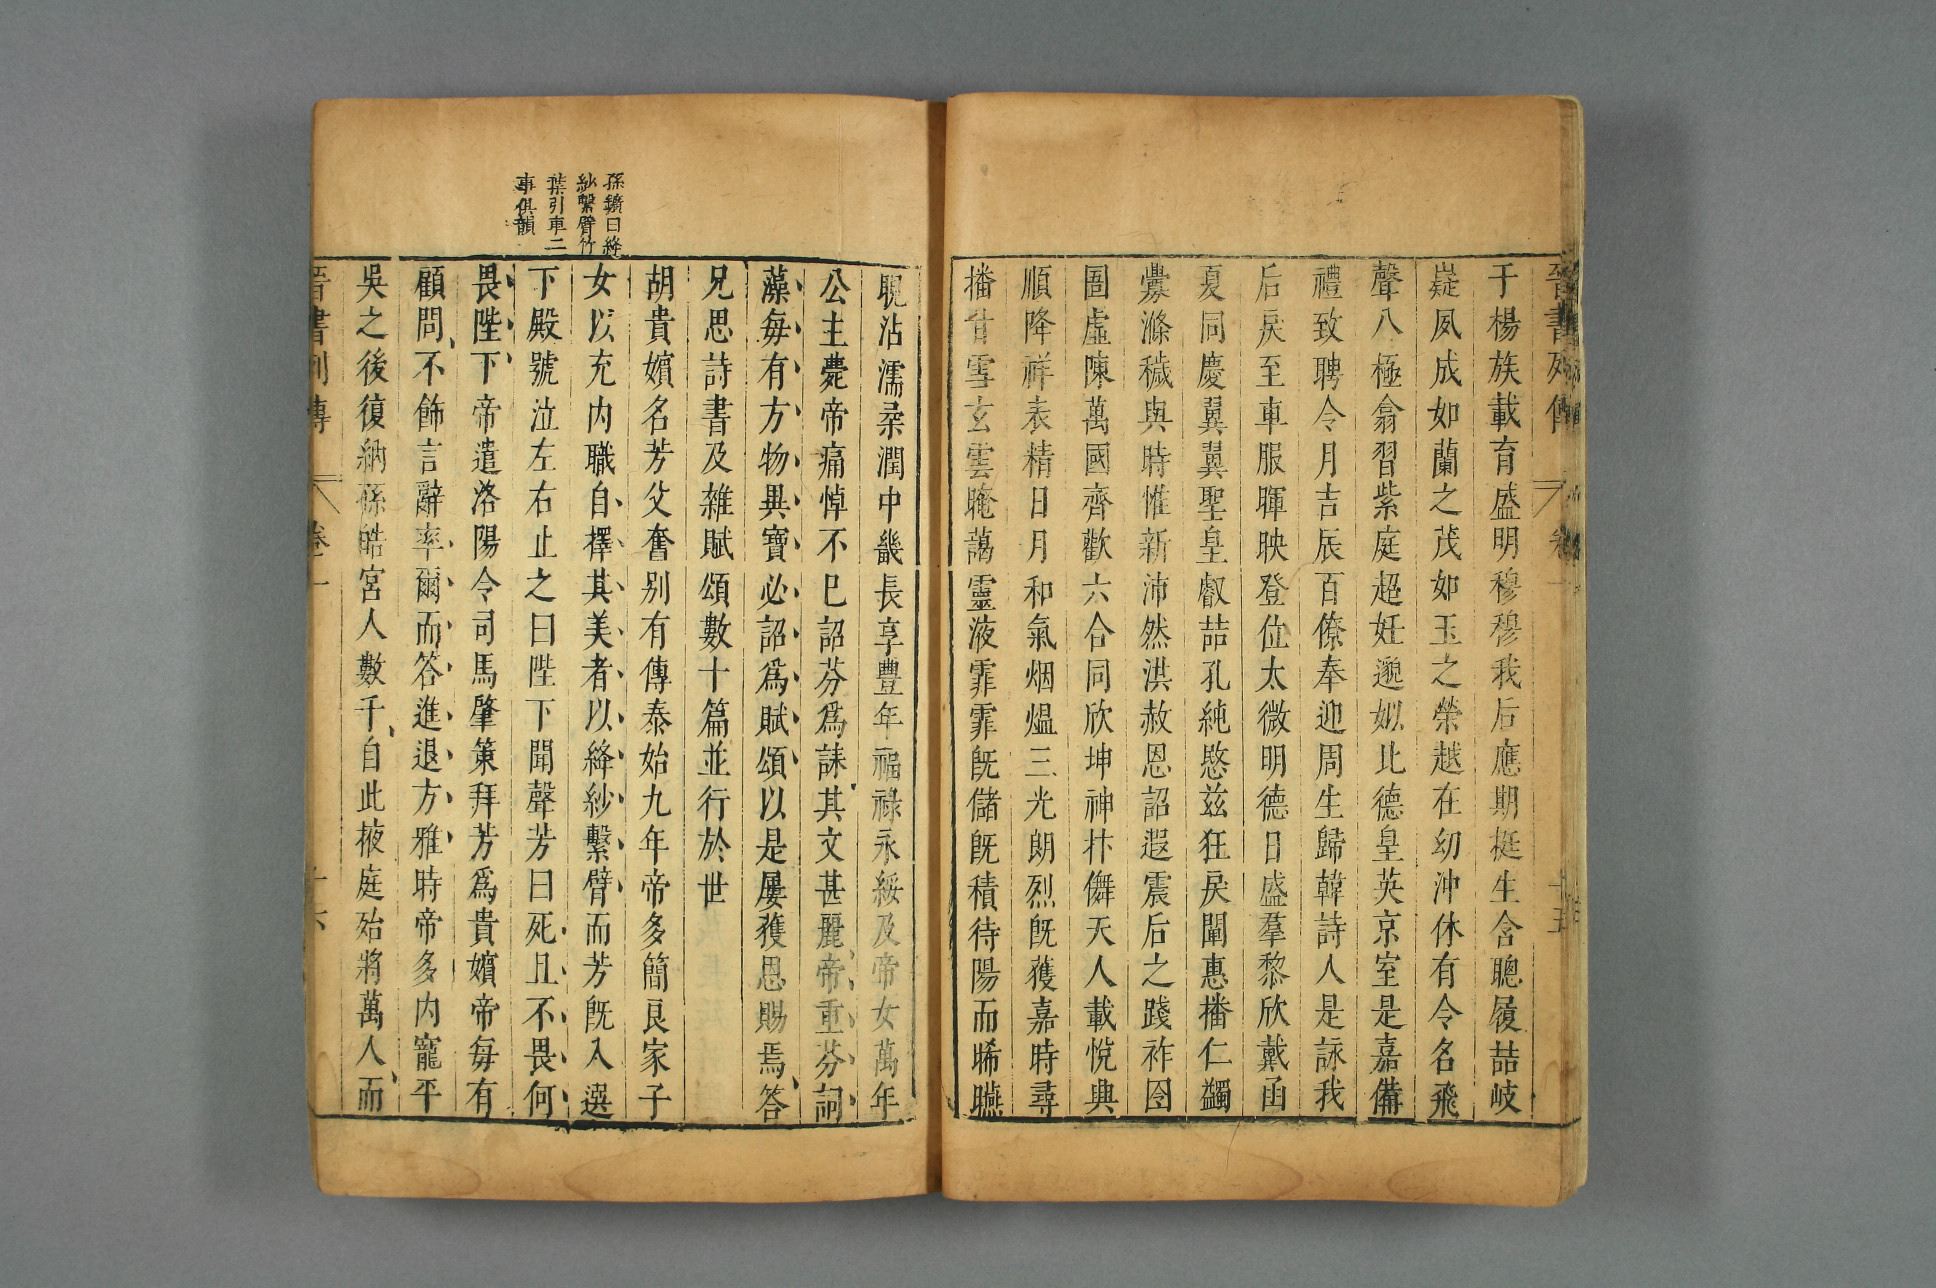 晉書列傳 卷一 十五
于楊族載育盛明穆穆我后應期挺生含聰履喆岐
嶷夙成如蘭之茂如玉之榮越在幼沖休有令名飛
聲八極翕習紫庭超妊邈姒比德皇英京室是嘉備
禮致聘令月吉辰百僚奉迎周生歸韓詩人是詠我
后戾至車服暉映登位太微明德日盛羣黎欣戴函
夏同慶翼翼聖皇叡喆孔純愍茲狂戾闡惠播仁蠲
釁滌穢與時惟新沛然洪赦恩詔遐震后之踐祚囹
圄虛陳萬國齊歡六合同欣坤神抃儛天人載悅興
順降祥表精日月和氣烟熅三光朗烈既獲嘉時尋
播甘雪玄雲晻藹靈液霏霏既儲既積待陽而晞曣
睍沾濡柔潤中畿長享豐年福祿永綏及帝女萬年
公主薨帝痛悼不已詔芬爲誄其文甚麗帝重芬詞
藻每有方物異寶必詔爲賦頌以是屢獲恩賜焉答
兄思詩書及雜賦頌數十篇並行於世
胡貴嬪名芳父奮别有傳泰始九年帝多簡良家子
女以充内職自擇其美者以絳紗繫臂而芳既入選
下殿號泣左右止之曰陛下聞聲芳曰死且不畏何
畏陛下帝遣洛陽令司馬肇策拜芳爲貴嬪帝每有
顧問不飾言辭率爾而答進退方雅時帝多内寵平
吳之後復納孫皓宮人數千自此掖庭殆將萬人而
晉書列傳 卷一 十六
孫鑛曰絳
紗繫臂竹
葉引車二
事俱韻